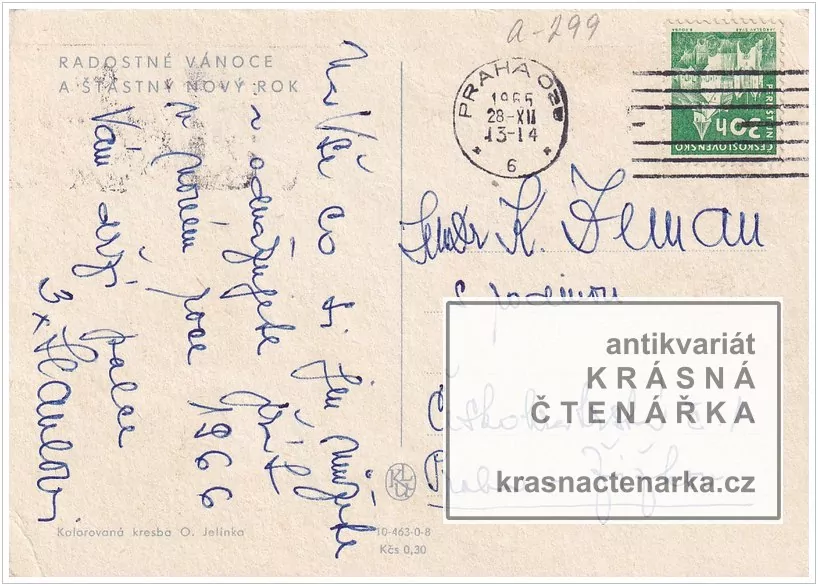 a-299
RADOSTNÉ VÁNOCE
A ŠŤASTNÝ NOVÝ ROK
PRAHA 025
1965
28-XII
13-14
6
30h
PERNŠTEJN
ČESKOSLOVENSKO
Na Vše co si jen můžete
v novém roce 1966
Vám drží palce
3x Hanlovi
K. Zeman
s rodinou
antikvariát
KRÁSNÁ
ČTENÁŘKA
krasnactenarka.cz
Kolorovaná kresba O. Jelínka
10-463-0-8
Kčs 0,30